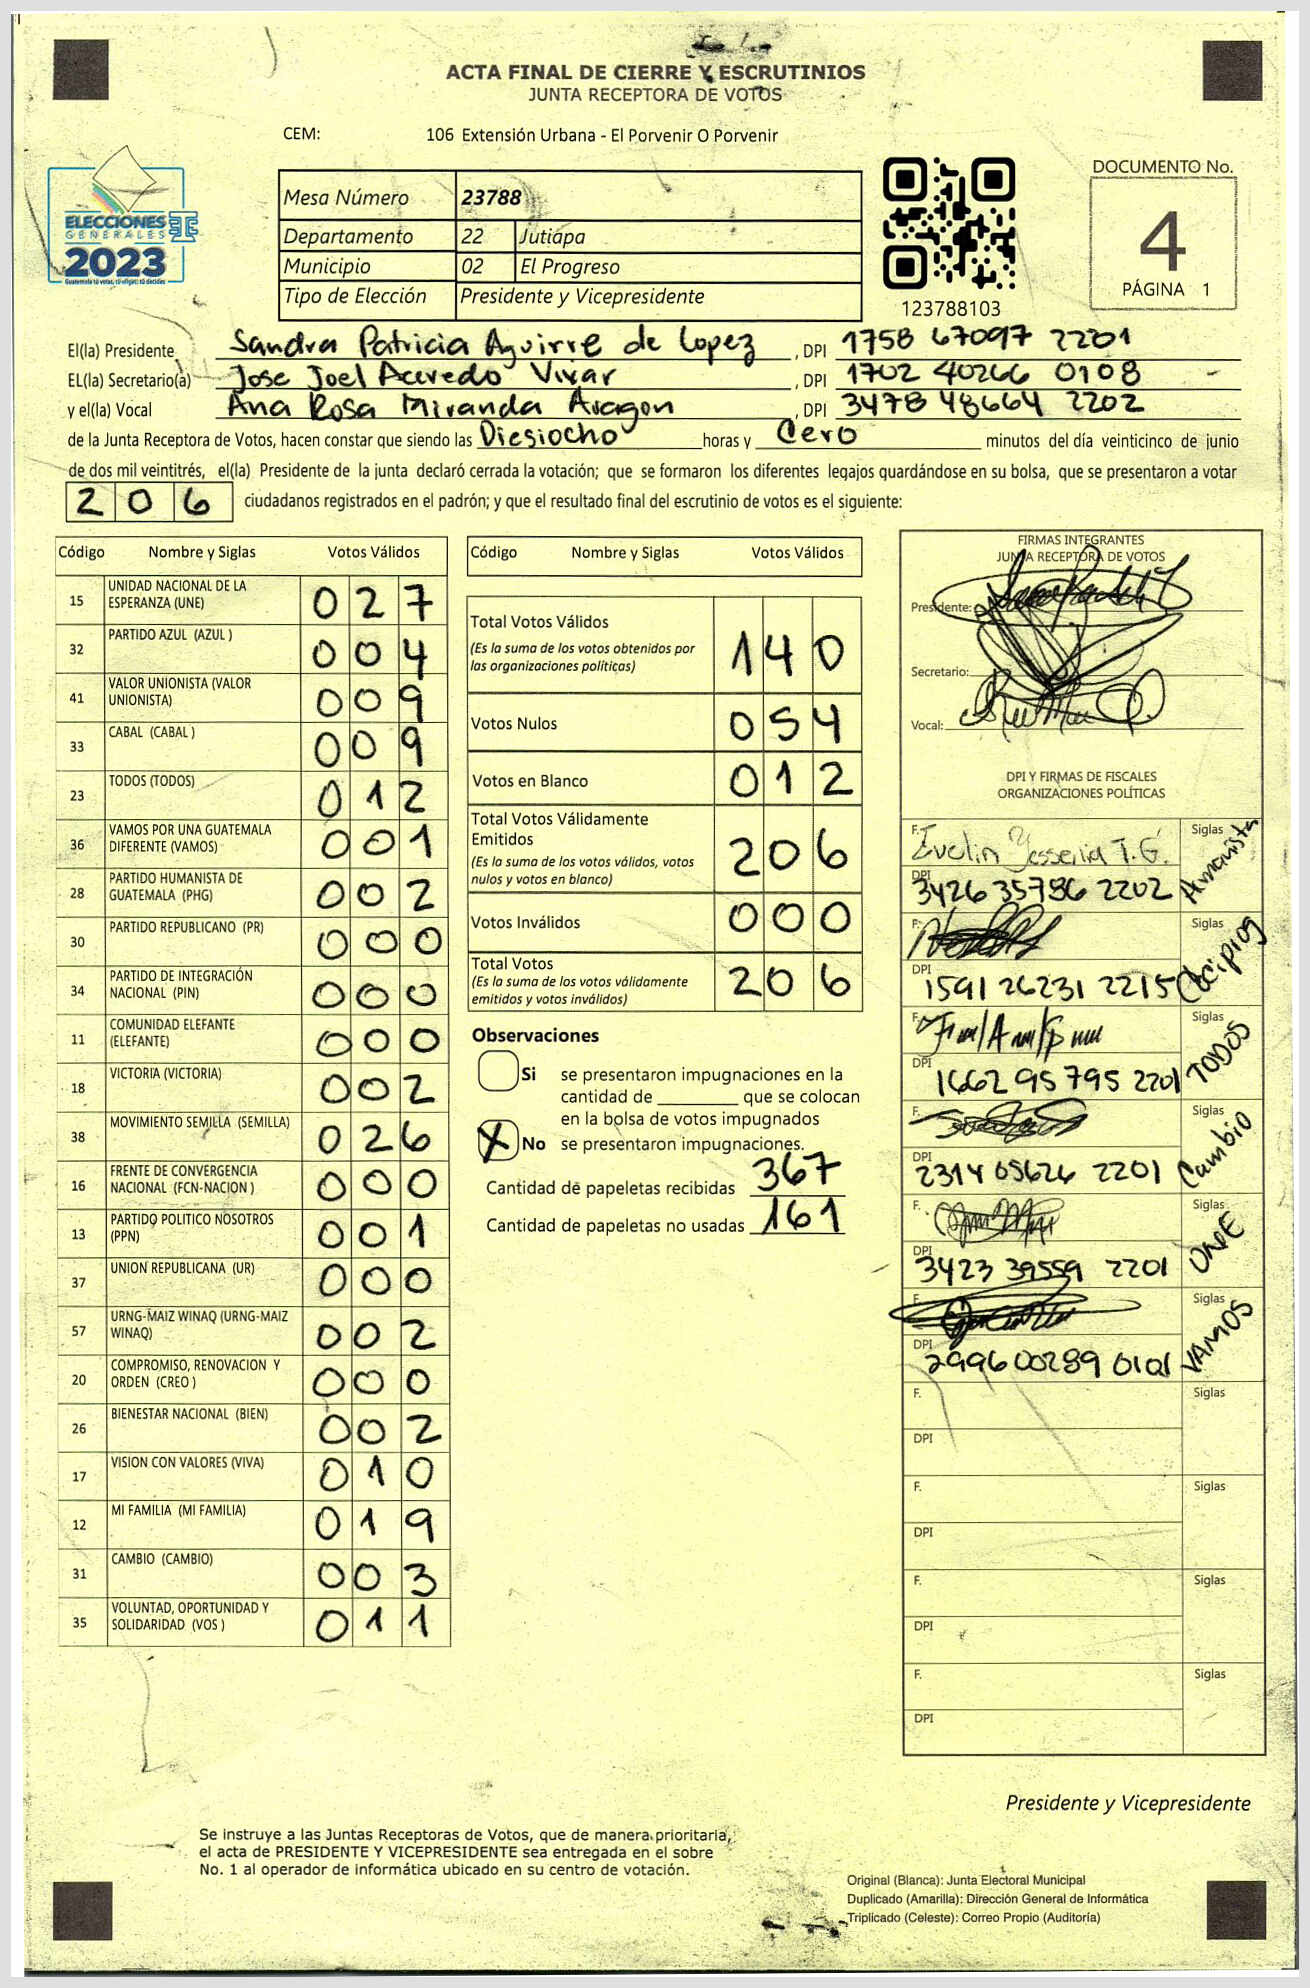 ACTA FINAL DE CIERRE Y ESCRUTINIOS
JUNTA RECEPTORA DE VOTOS
CEM: 106 Extensión Urbana - El Porvenir O Porvenir
ELECCIONES
GENERALES
2023
Guatemala tú votas, tú eliges, tú decides
Mesa Número 23788
Departamento 22 Jutiapa
Municipio 02 El Progreso
Tipo de Elección Presidente y Vicepresidente
123788103
DOCUMENTO No.
4
PÁGINA 1
El(la) Presidente Sandra Patricia Aguirre de Lopez , DPI 1758 67097 2201
EL(la) Secretario(a) Jose Joel Acevedo Vivar , DPI 1702 40266 0108
y el(la) Vocal Ana Rosa Miranda Aragon , DPI 3478 48664 2202
de la Junta Receptora de Votos, hacen constar que siendo las Diesiocho horas y Cero minutos del día veinticinco de junio
de dos mil veintitrés, el(la) Presidente de la junta declaró cerrada la votación; que se formaron los diferentes legajos guardándose en su bolsa, que se presentaron a votar
206 ciudadanos registrados en el padrón; y que el resultado final del escrutinio de votos es el siguiente:
Código Nombre y Siglas Votos Válidos
15 UNIDAD NACIONAL DE LA ESPERANZA (UNE) 027
32 PARTIDO AZUL (AZUL ) 004
41 VALOR UNIONISTA (VALOR UNIONISTA) 009
33 CABAL (CABAL ) 009
23 TODOS (TODOS) 012
36 VAMOS POR UNA GUATEMALA DIFERENTE (VAMOS) 001
28 PARTIDO HUMANISTA DE GUATEMALA (PHG) 002
30 PARTIDO REPUBLICANO (PR) 000
34 PARTIDO DE INTEGRACIÓN NACIONAL (PIN) 000
11 COMUNIDAD ELEFANTE (ELEFANTE) 000
18 VICTORIA (VICTORIA) 002
38 MOVIMIENTO SEMILLA (SEMILLA) 026
16 FRENTE DE CONVERGENCIA NACIONAL (FCN-NACION ) 000
13 PARTIDO POLITICO NOSOTROS (PPN) 001
37 UNION REPUBLICANA (UR) 000
57 URNG-MAIZ WINAQ (URNG-MAIZ WINAQ) 002
20 COMPROMISO, RENOVACION Y ORDEN (CREO ) 000
26 BIENESTAR NACIONAL (BIEN) 002
17 VISION CON VALORES (VIVA) 010
12 MI FAMILIA (MI FAMILIA) 019
31 CAMBIO (CAMBIO) 003
35 VOLUNTAD, OPORTUNIDAD Y SOLIDARIDAD (VOS ) 011
Código Nombre y Siglas Votos Válidos
Total Votos Válidos 140
(Es la suma de los votos obtenidos por
las organizaciones políticas)
Votos Nulos 054
Votos en Blanco 012
Total Votos Válidamente
Emitidos 206
(Es la suma de los votos válidos, votos
nulos y votos en blanco)
Votos Inválidos 000
Total Votos 206
(Es la suma de los votos válidamente
emitidos y votos inválidos)
Observaciones
Si se presentaron impugnaciones en la
cantidad de ________ que se colocan
en la bolsa de votos impugnados
X No se presentaron impugnaciones.
Cantidad de papeletas recibidas 367
Cantidad de papeletas no usadas 161
FIRMAS INTEGRANTES
JUNTA RECEPTORA DE VOTOS
Presidente:
Secretario:
Vocal:
DPI Y FIRMAS DE FISCALES
ORGANIZACIONES POLÍTICAS
F. Evelin Yesseria T.G. Siglas
DPI 3426 35786 2202
F. Siglas
DPI 1591 26231 2215
F. Siglas TODOS
DPI 1662 95795 2201
F. Siglas Cambio
DPI 2314 05626 2201
F. Siglas UNE
DPI 3423 39559 2201
F. Siglas VAMOS
DPI 2996 00289 0101
F. Siglas
DPI
F. Siglas
DPI
F. Siglas
DPI
F. Siglas
DPI
Presidente y Vicepresidente
Se instruye a las Juntas Receptoras de Votos, que de manera prioritaria,
el acta de PRESIDENTE Y VICEPRESIDENTE sea entregada en el sobre
No. 1 al operador de informática ubicado en su centro de votación.
Original (Blanca): Junta Electoral Municipal
Duplicado (Amarilla): Dirección General de Informática
Triplicado (Celeste): Correo Propio (Auditoría)